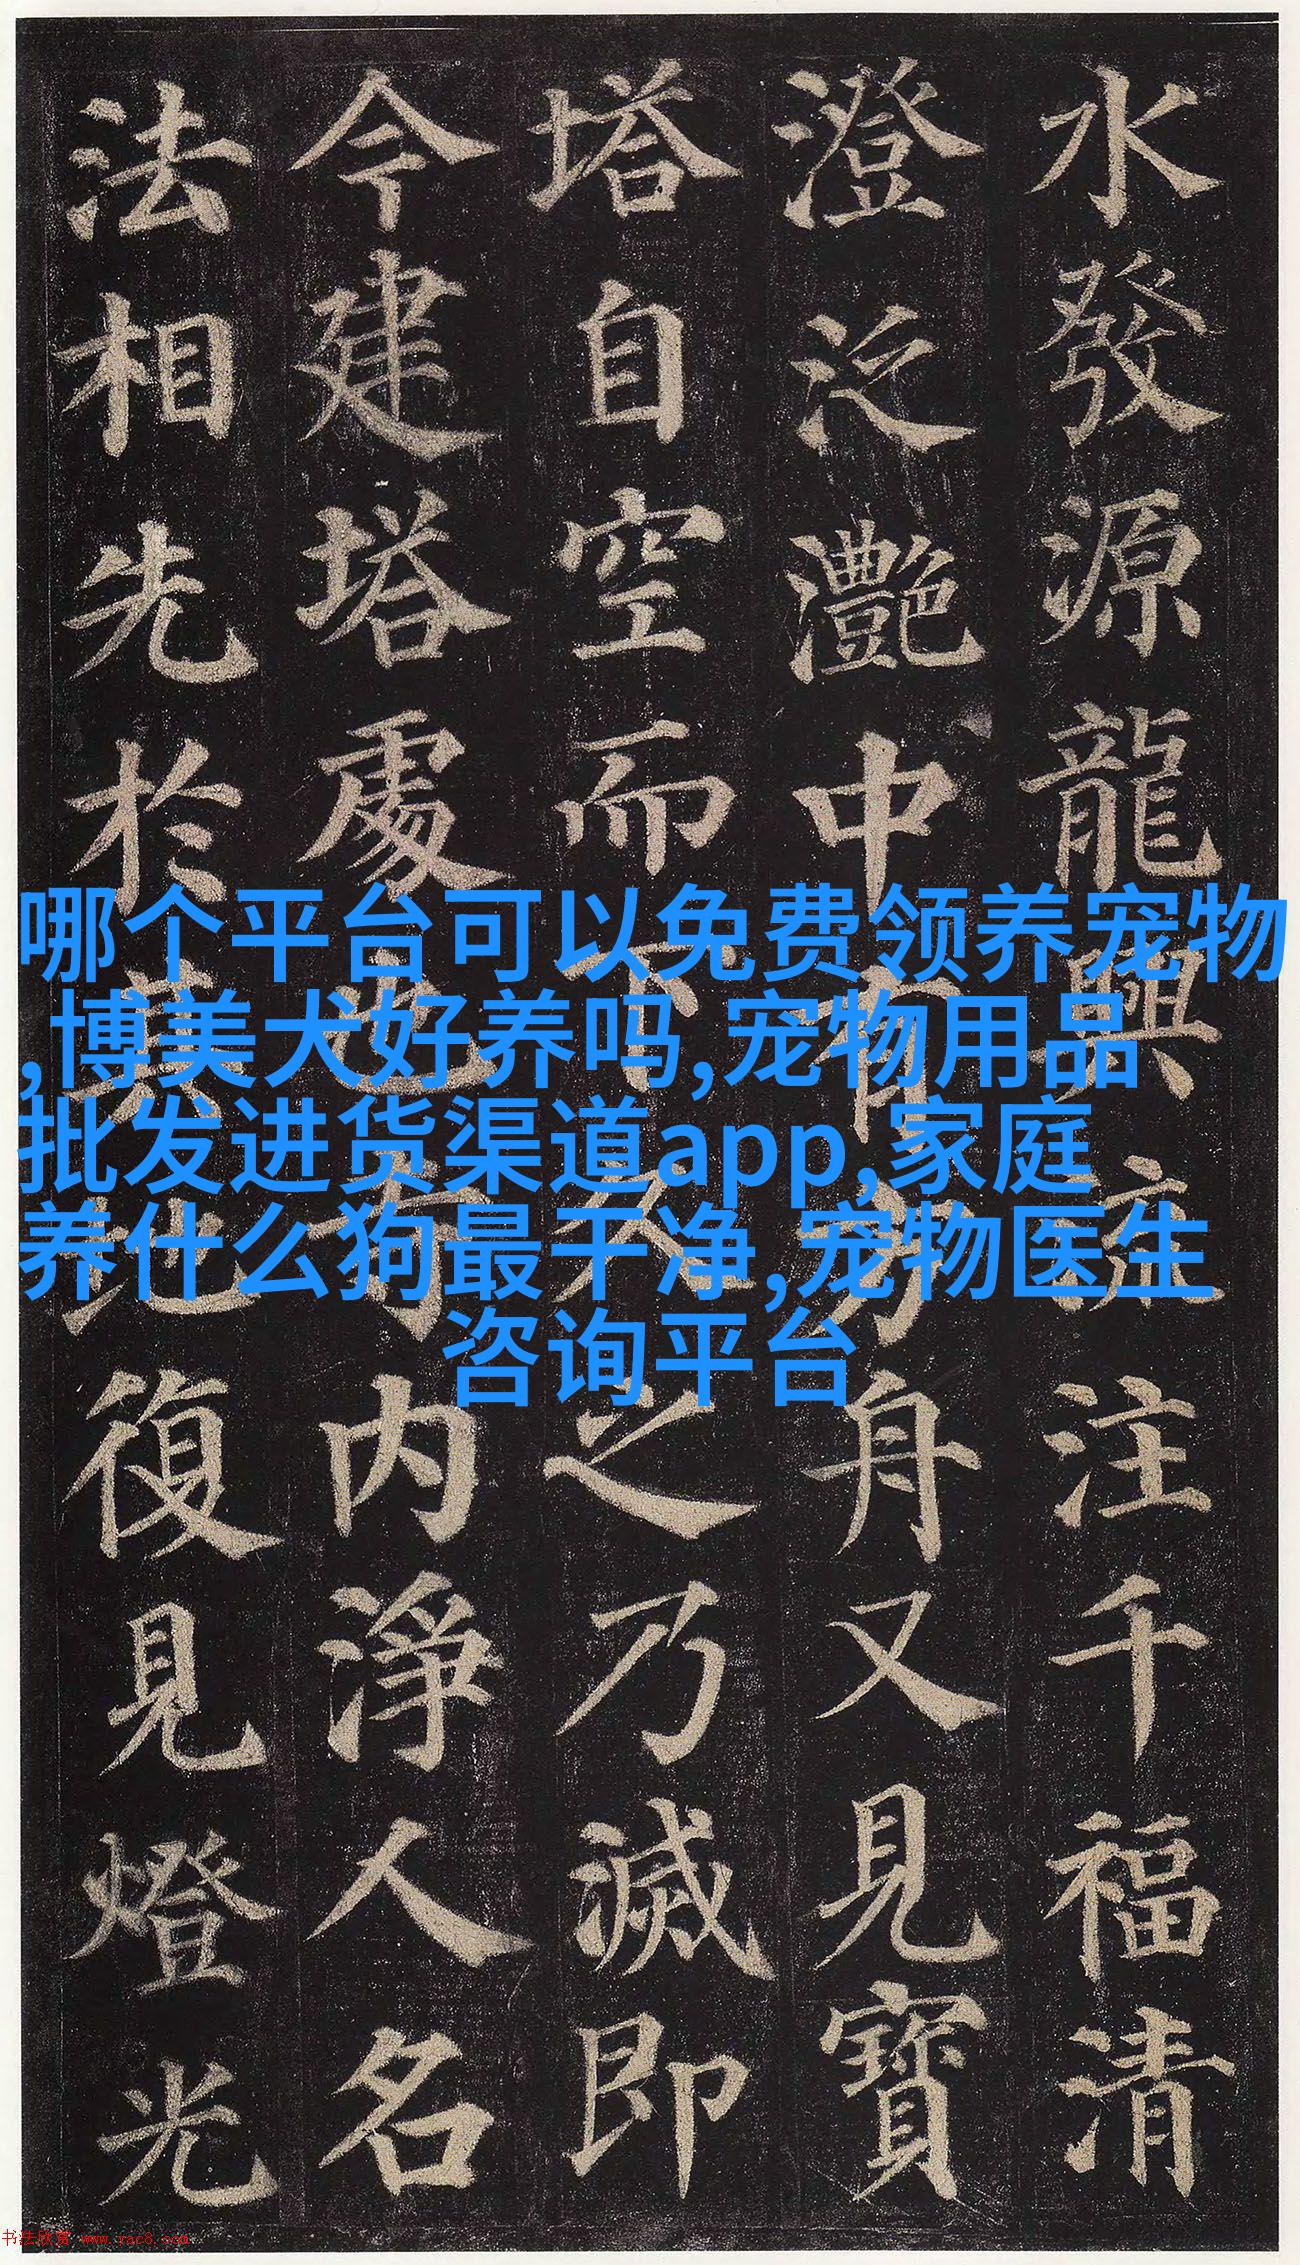 水發源龍興流注千福清
澄泛灩中有方舟又見寶
塔自空而下久之乃滅即
今建塔處也寺内淨人名
法相先於其地復見燈光
哪个平台可以免费领养宠物
,博美犬好养吗,宠物用品
批发进货渠道app,家庭
养什么狗最干净,宠物医生
咨询平台
书法欣赏 www.yac8.com